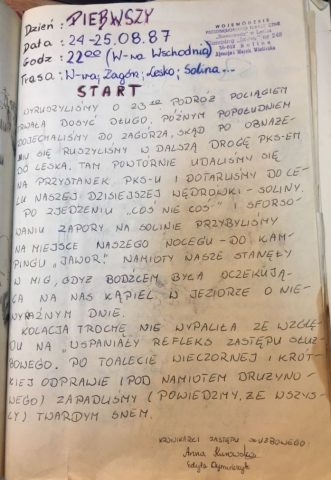 Dzień: PIERWSZY
Data: 24-25.08.87
Godz: 22ºº (W-wa Wschodnia)
Trasa: W-wa; Zagórz; Lesko; Solina...
WOJEWÓDZKIE
START
WYRUSZYLIŚMY O 23 PODRÓŻ POCIĄGIEM
TRWAŁA DOSYĆ DŁUGO. PÓŹNYM POPOŁUDNIEM
DOJECHALIŚMY DO ZAGÓRZA, SKĄD PO
SIĘ RUSZYLIŚMY W DALSZĄ DROGĘ PKS-EM
DO LESKA. TAM POWTÓRNIE UDALIŚMY SIĘ
NA PRZYSTANEK PKS-U I DOTARLIŚMY DO CE-
LU NASZEJ DZISIEJSZEJ WĘDRÓWKI - SOLINY.
PO ZJEDZENIU „COŚ NIE COŚ" I SFORSO-
WANIU ZAPORY NA SOLINIE PRZYBYLIŚMY
NA MIEJSCE NASZEGO NOCLEGU - DO KAM-
PINGU „JAWOR". NAMIOTY NASZE STANĘŁY
W MIG, GDYŻ BODŹCEM BYŁA OCZEKUJĄ-
CA NA NAS KĄPIEL W JEZIORZE O NIE-
WYRAŹNYM DNIE.
KOLACJA TROCHĘ NIE WYPALIŁA ZE WZGLĘ-
DU NA "WSPANIAŁY REFLEKS ZASTĘPU SŁUŻ-
BOWEGO. PO TOALECIE WIECZORNEJ I KRÓT-
KIEJ ODPRAWIE (POD NAMIOTEM DRUŻYNO-
WEGO) ZAPADLIŚMY (POWIEDZMY, ŻE WSZYS-
CY) TWARDYM SNEM.
KRONIKARZE ZASTĘPU SŁUŻBOWEGO:
Anna
Edyta